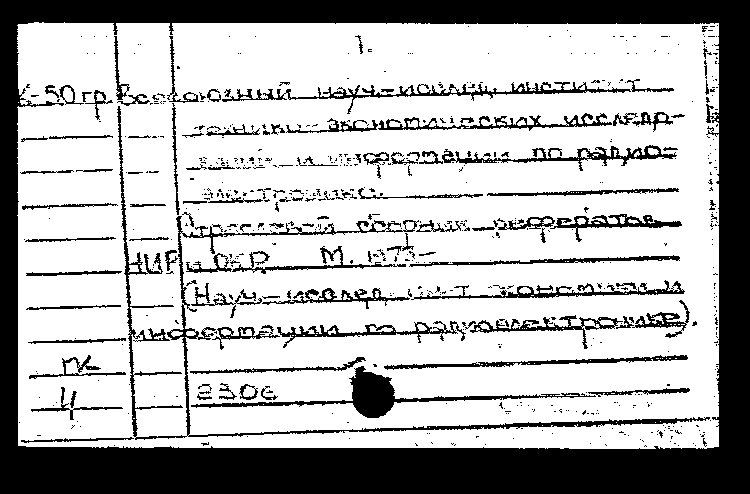 1.
К-50гр. Всесоюзный науч.-исслед. институт
технико-экономических исследо-
ваний и информации по радио-
электронике.
Отраслевой сборник рефератов
НИР и ОКР. М. 1973-
(Науч.-исслед. ин-т экономики и
информации по радиоэлектронике).
4 2306